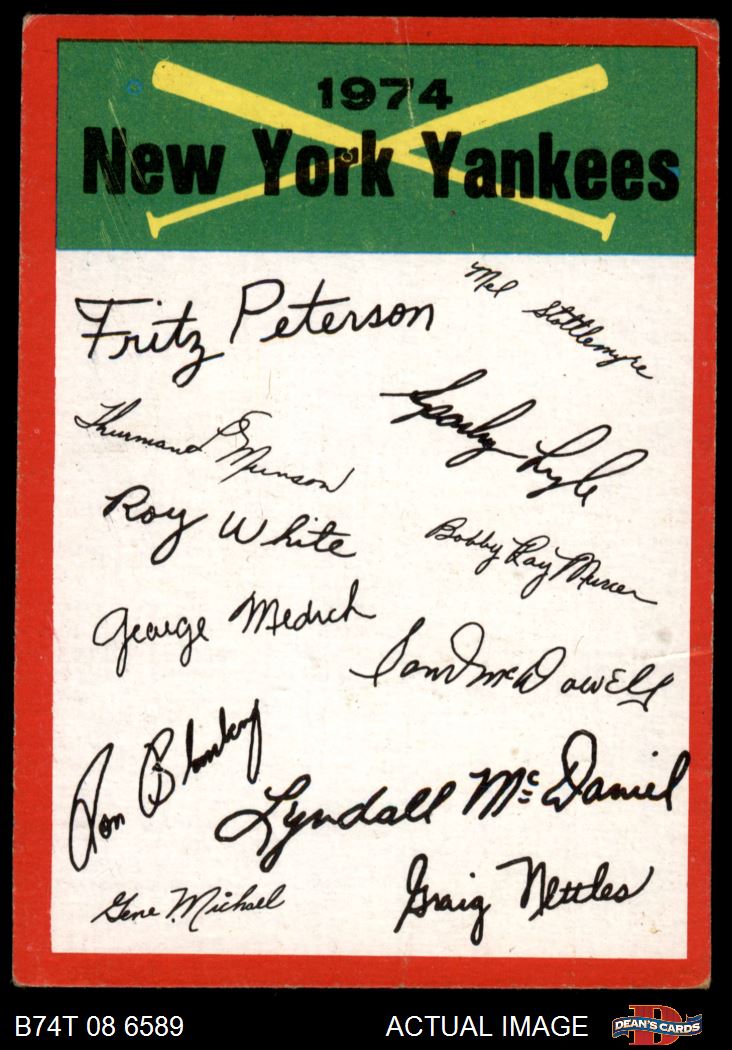 1974
New York Yankees
Fritz Peterson
Mel Stottlemyre
Thurman Munson
Sparky Lyle
Roy White
Bobby Ray Murcer
George Medich
Sam McDowell
Ron Blomberg
Lyndall McDaniel
Gene Michael
Graig Nettles
B74T 08 6589
ACTUAL IMAGE
D
DEAN'S CARDS